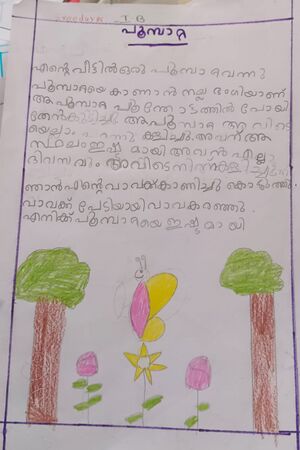 Sreedurga I B
പൂമ്പാറ്റ
എന്റെ വീട്ടിൽ ഒരു പൂമ്പാറ്റ വന്നു
പൂമ്പാറ്റയെ കാണാൻ നല്ല ഭംഗിയാണ്
ആ പൂമ്പാറ്റ പൂന്തോട്ടത്തിൽ പോയി
തേൻ കുടിച്ചു ആ പൂമ്പാറ്റ അവിടെ
യെല്ലാം പറന്നു കളിച്ചു അവന് ആ
സ്ഥലം ഇഷ്ടമായി അവൻ എല്ലാ
ദിവസവും അവിടെ നിന്നു കളിച്ചു
ഞാൻ എന്റെ വാവയ്ക്ക് കാണിച്ചു കൊടുത്തു
വാവക്ക് പേടിയായി വാവ കരഞ്ഞു.
എനിക്ക് പൂമ്പാറ്റയെ ഇഷ്ടമായി